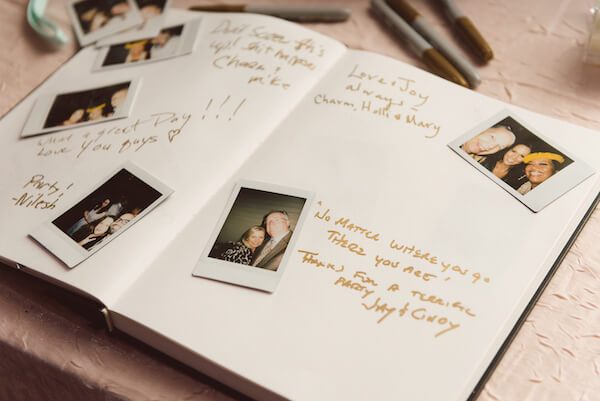 Don't Screw this
up! Shit happens
Cheers!
mike
What a great Day!!!
Love You Guys
Party!
-Nilesh
Love & Joy
always -
Charm, Holli & Mary
"No matter where you go
there you are"
Thanks for a terrific
party Jay & Cindy